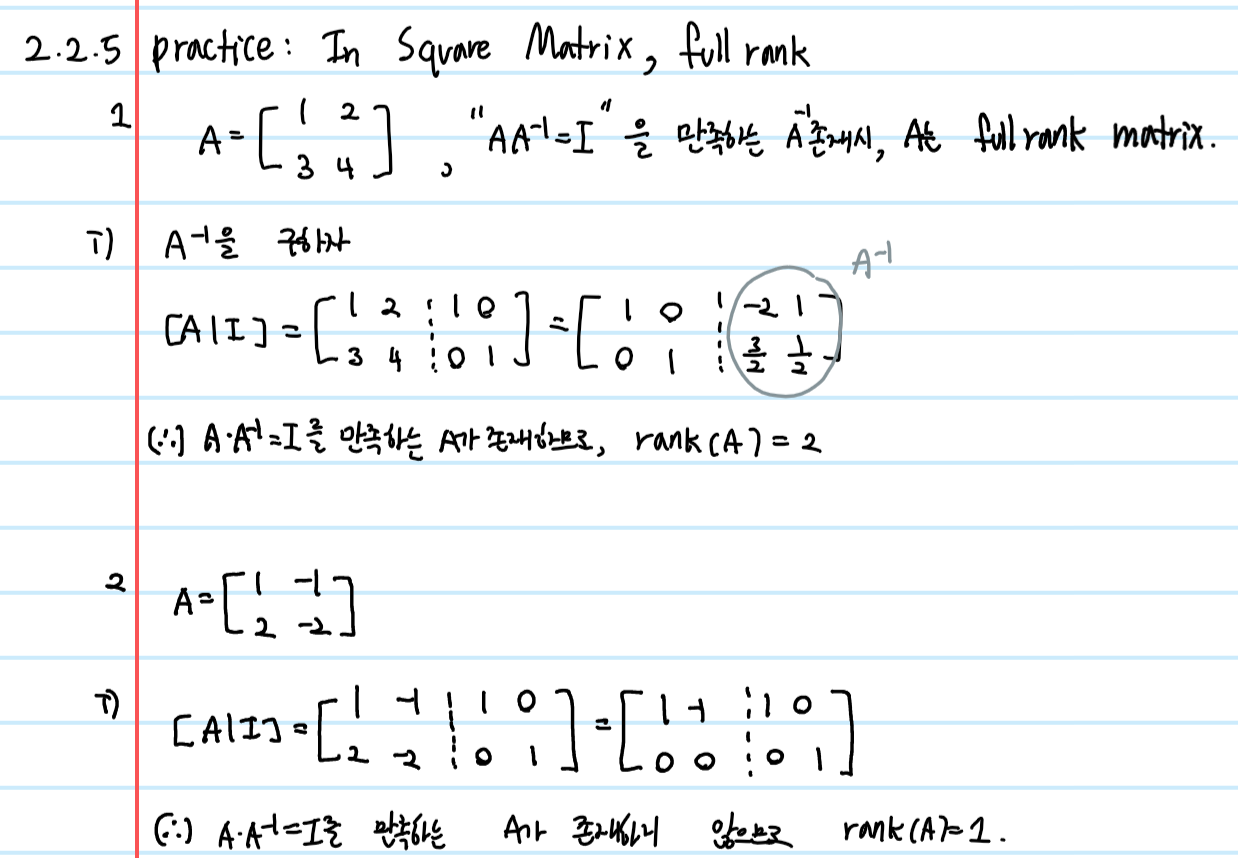 2.2.5 practice: In Square Matrix, full rank
1 A = [1 2; 3 4], "AA⁻¹=I"을 만족하는 A⁻¹존재시, A는 full rank matrix.
i) A⁻¹을 구하자
A⁻¹
[A|I] = [1 2 ⋮ 1 0; 3 4 ⋮ 0 1] = [1 0 ⋮ -2 1; 0 1 ⋮ 3/2 1/2]
(∴) A·A⁻¹=I를 만족하는 A가 존재하므로, rank(A) = 2
2 A = [1 -1; 2 -2]
i) [A|I] = [1 -1 ⋮ 1 0; 2 -2 ⋮ 0 1] = [1 -1 ⋮ 1 0; 0 0 ⋮ 0 1]
(∴) A·A⁻¹=I를 만족하는 A가 존재하지 않으므로 rank(A)=1.